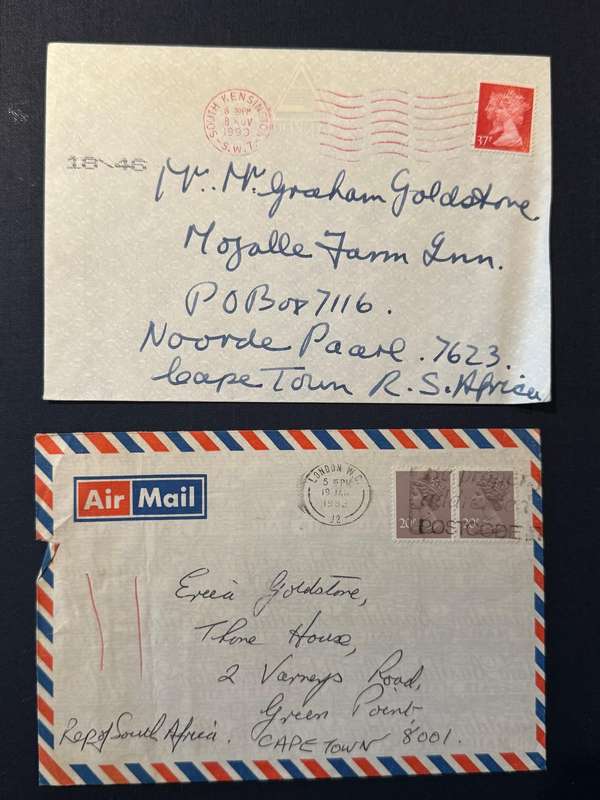 SOUTH KENSINGTON
8 NOV
1993
S.W.7.
37P
18\46
Mr. Mr. Graham Goldstone
Mozalle Farm Inn.
P O Box 7116.
Noorde Paarl. 7623.
Cape Town R. S. Africa
Air Mail
LONDON W.C.
5 PM
19 JAN
J2
20P
20P
POSTCODE
Erica Goldstone,
Thone House,
2 Varneys Road,
Green Point,
Rep of South Africa. CAPE TOWN 8001.